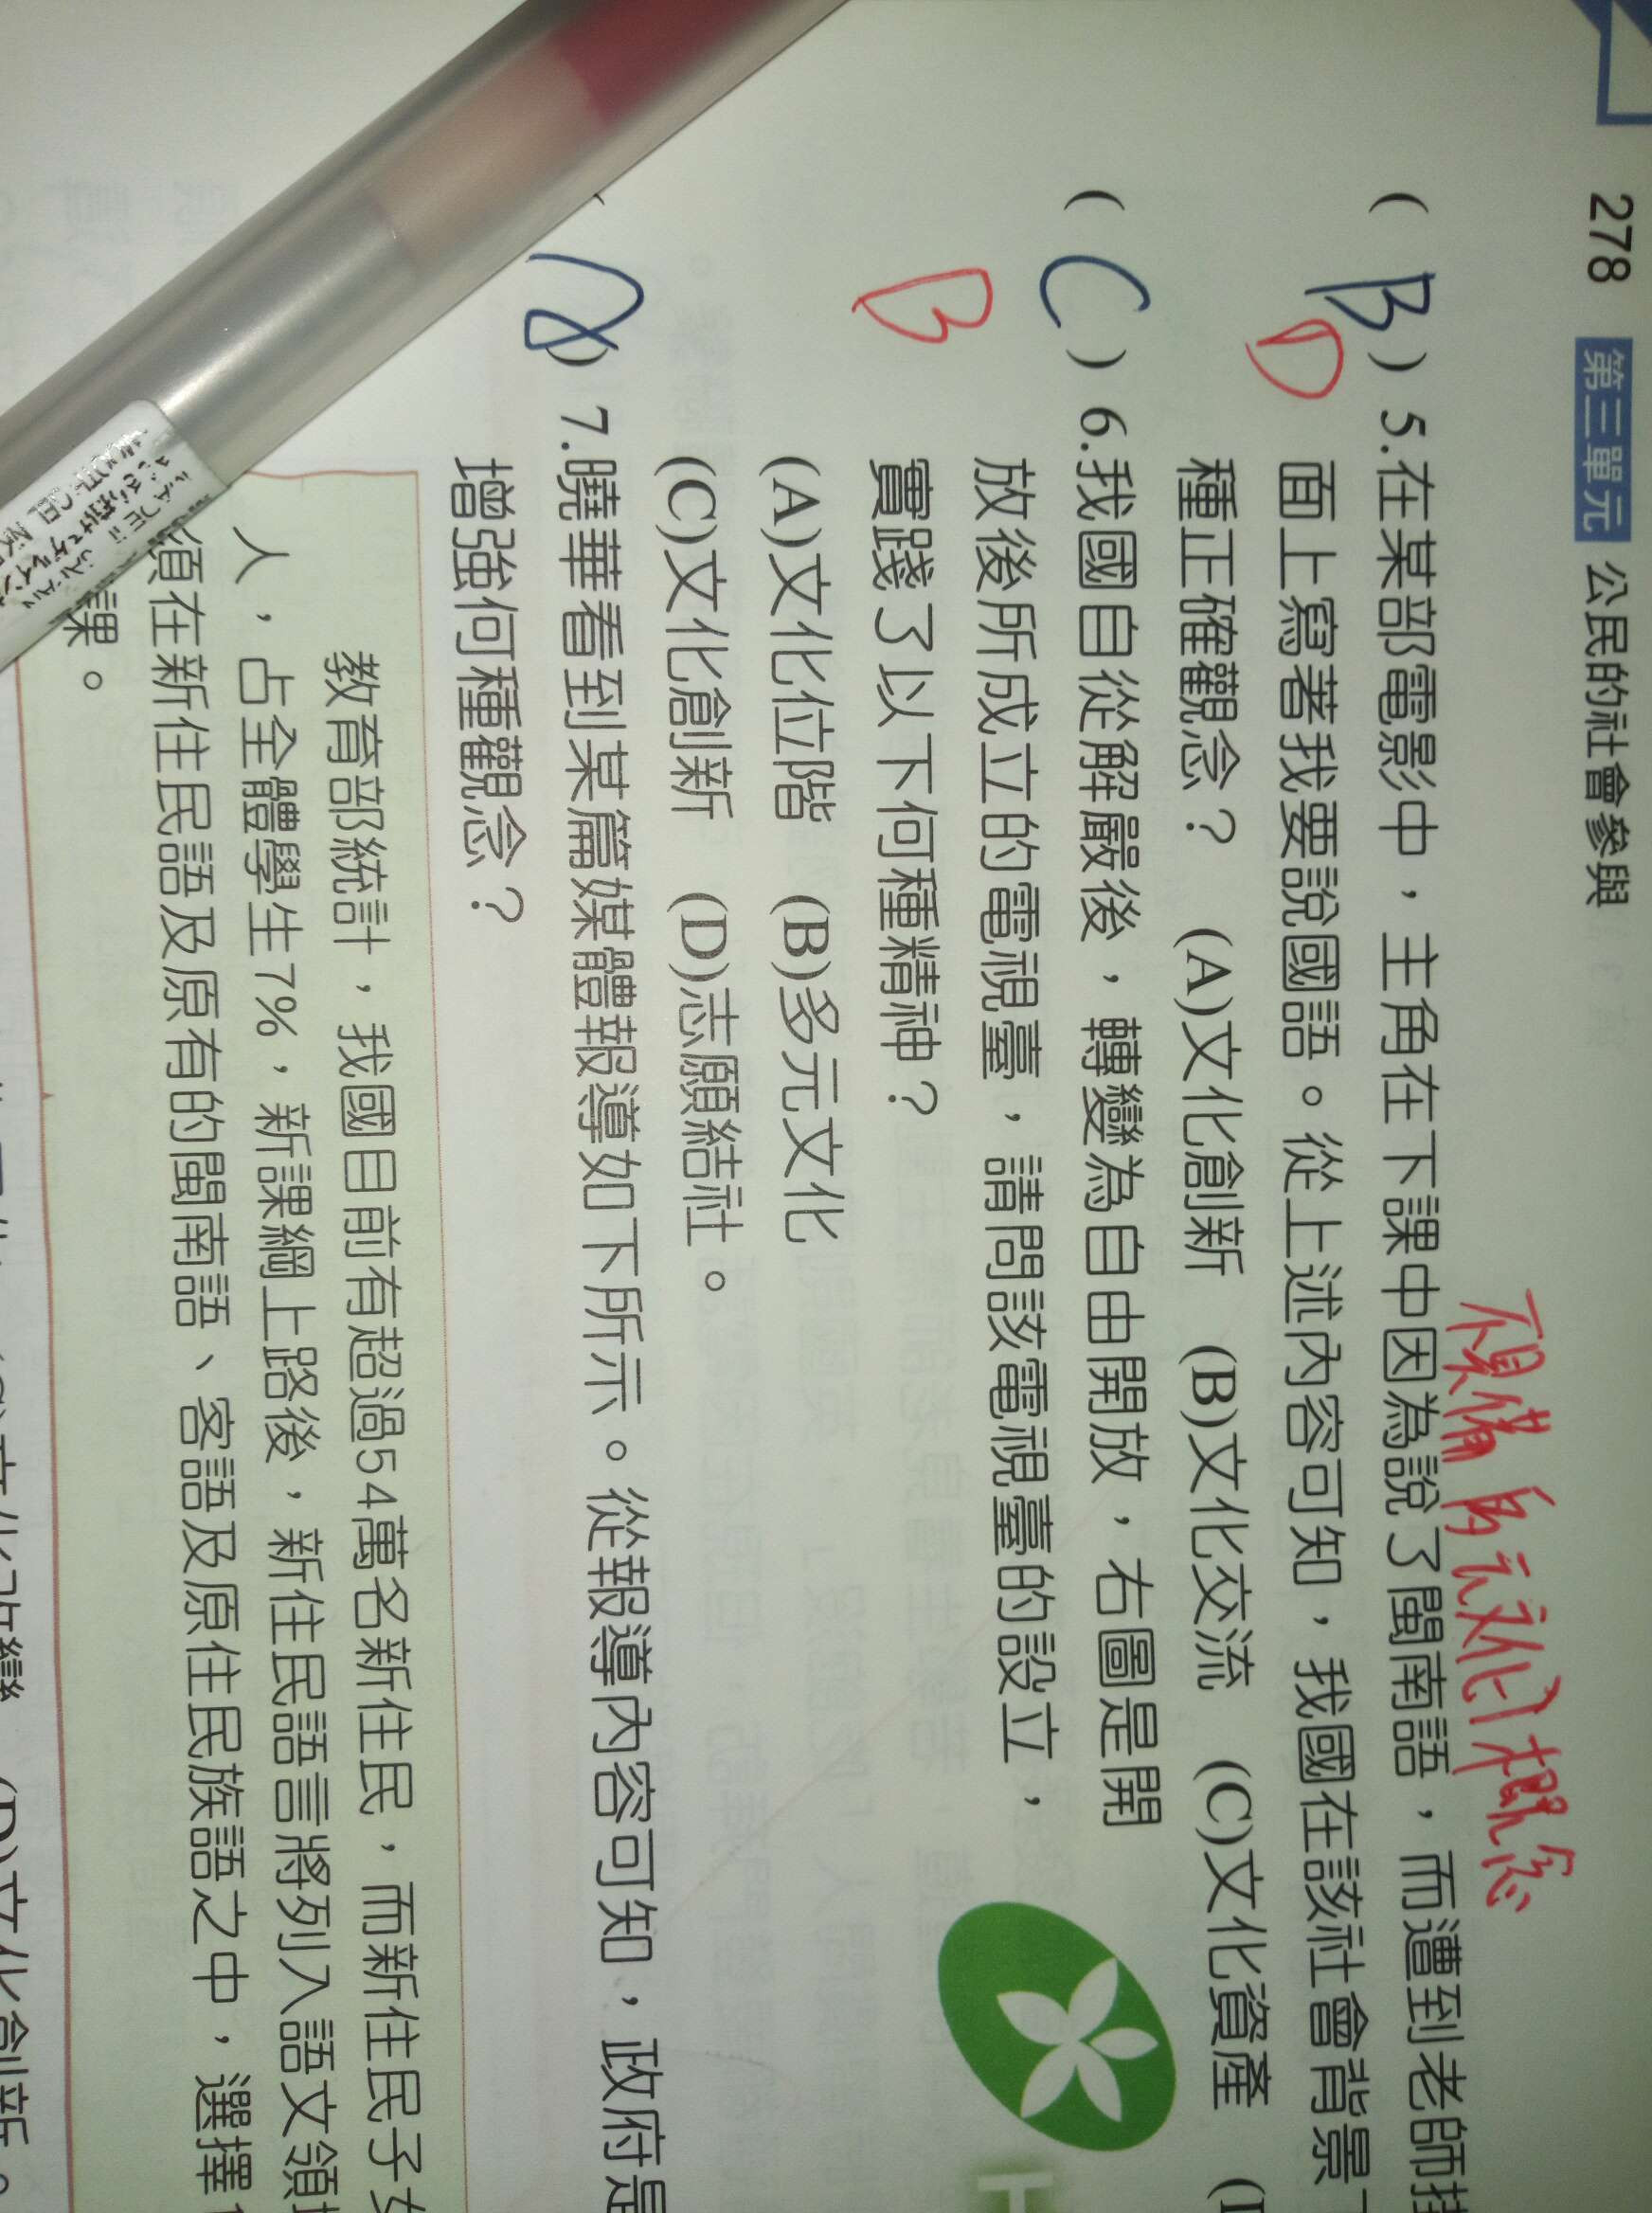 278 第三單元 公民的社會參與
不具備多元文化概念
( B ) 5.在某部電影中，主角在下課中因為說了閩南語，而遭到老師掛
D
面上寫著我要說國語。從上述內容可知，我國在該社會背景下
種正確觀念？ (A)文化創新 (B)文化交流 (C)文化資產
( C ) 6.我國自從解嚴後，轉變為自由開放，右圖是開
放後所成立的電視臺，請問該電視臺的設立，
B
實踐了以下何種精神？
(A)文化位階 (B)多元文化
(C)文化創新 (D)志願結社。
) 7.曉華看到某篇媒體報導如下所示。從報導內容可知，政府是
增強何種觀念？
教育部統計，我國目前有超過54萬名新住民，而新住民子女
人，占全體學生7%，新課綱上路後，新住民語言將列入語文領
須在新住民語及原有的閩南語、客語及原住民族語之中，選擇
課。
文化改變 (D)文化創新。